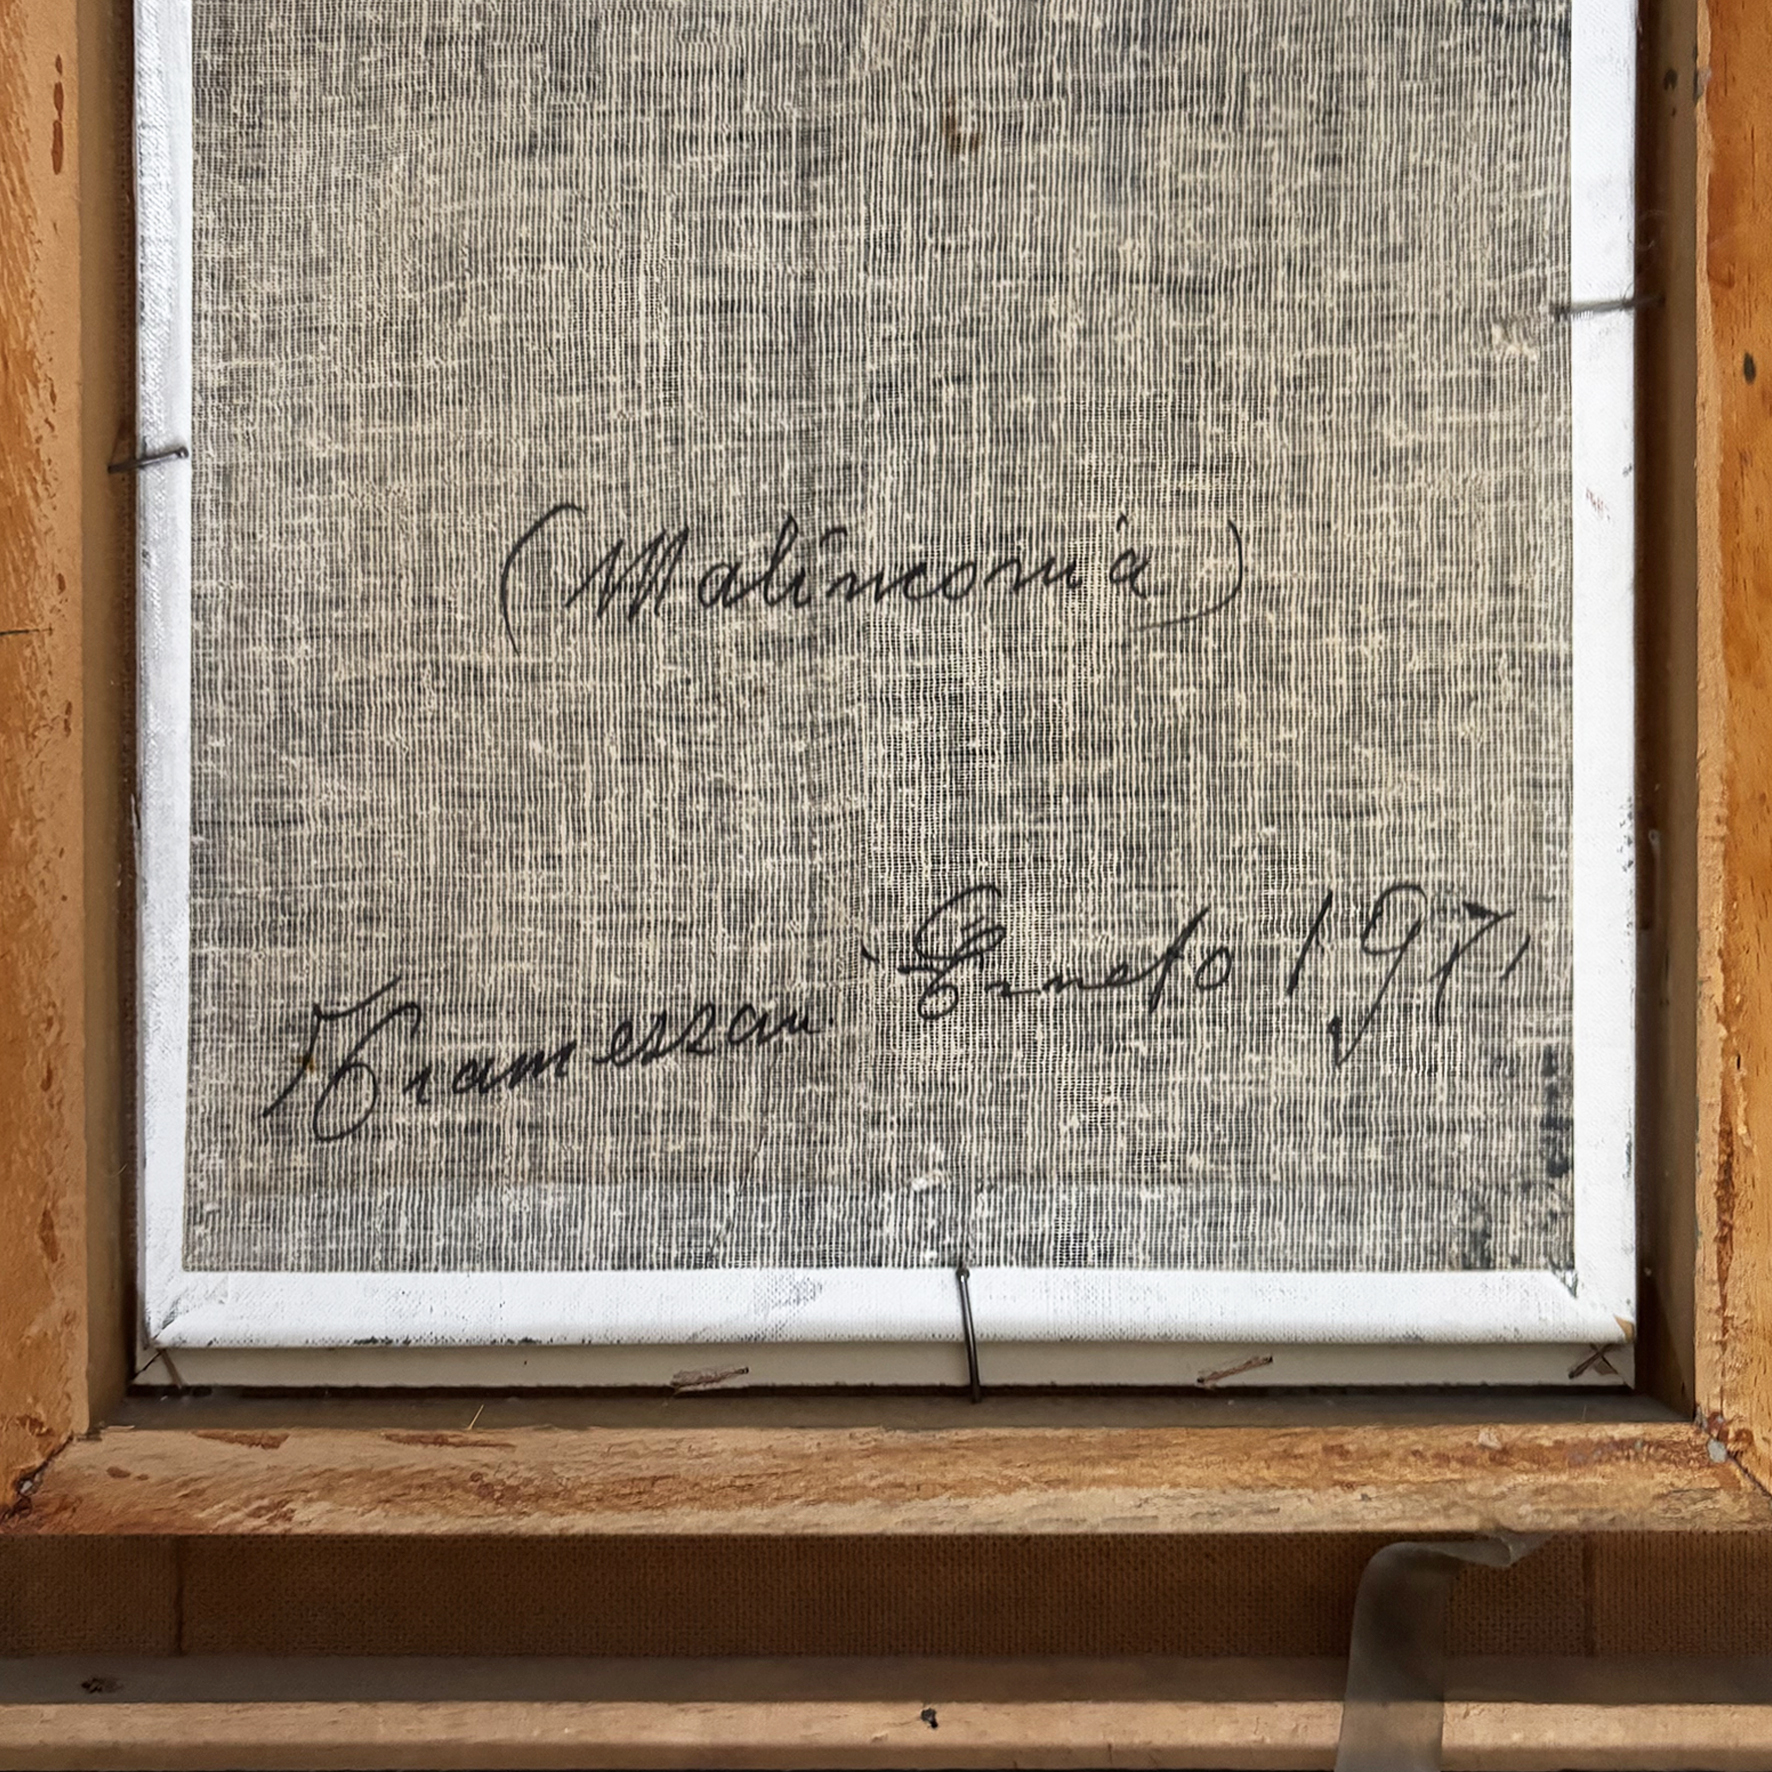 (Malinconia)
Tramezzani Erneto 1971